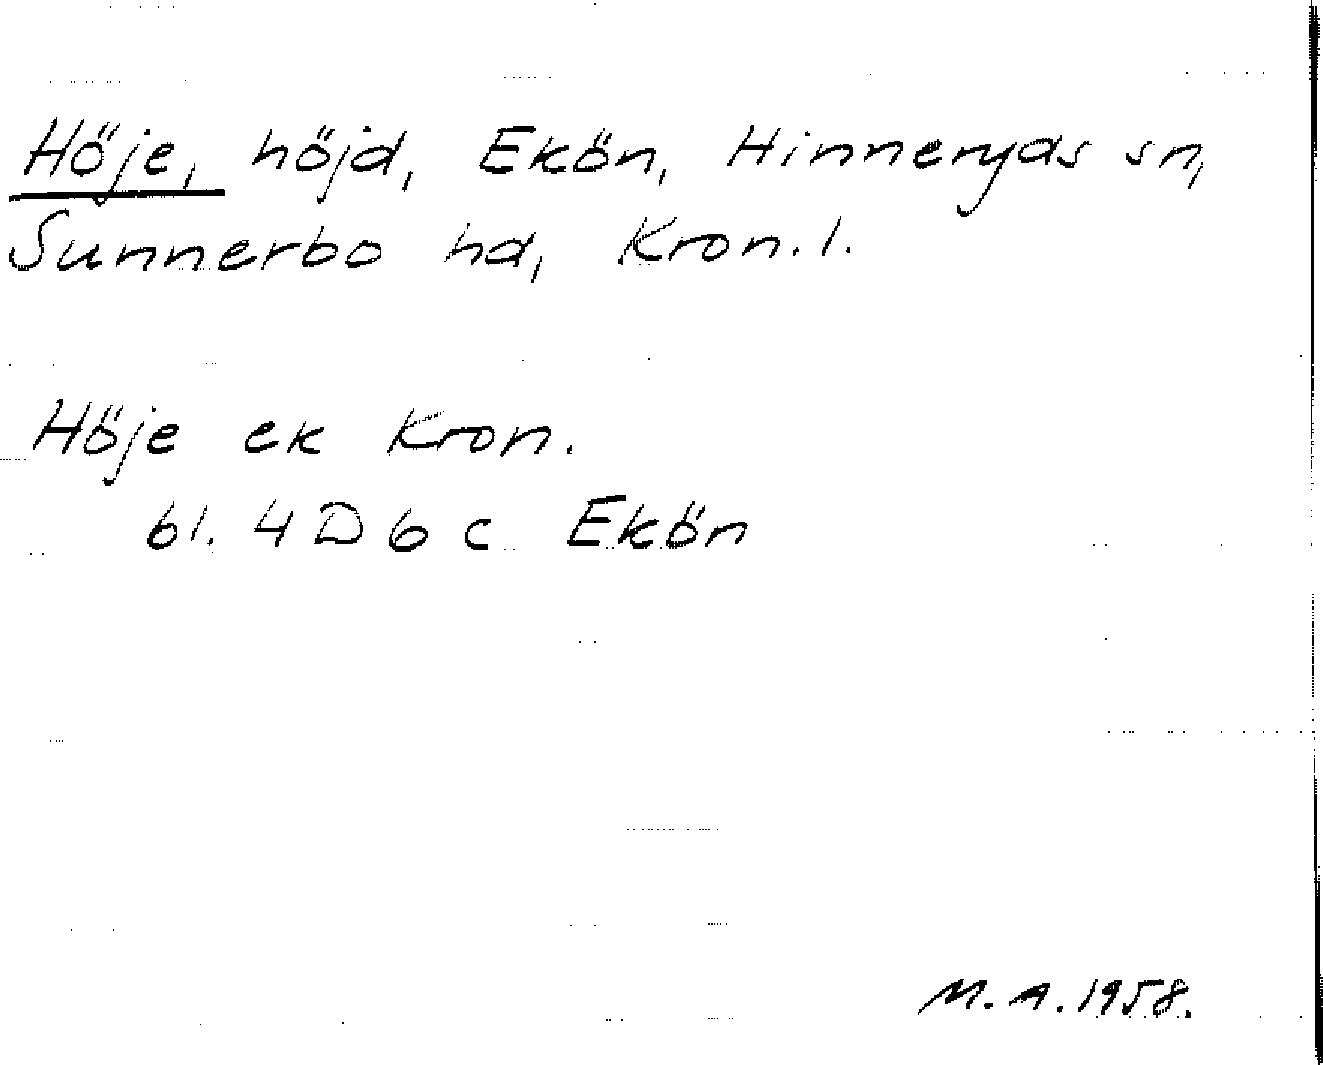 Höje, höjd, Ekön, Hinneryds sn,
Sunnerbo hd, Kron. l.
Höje ek Kron.
bl. 4 D 6 c Ekön
M. A. 1958.